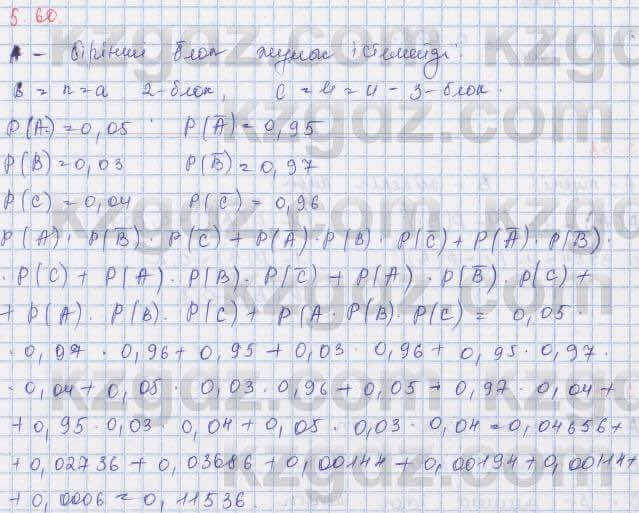 5.60
A - бірінші блок жұмыс істемейді.
B = n = a 2-блок, C = u = u - 3-блок.
P(A) = 0,05 P(Ā) = 0,95
P(B) = 0,03 P(B̄) = 0,97
P(C) = 0,04 P(C̄) = 0,96
P(A) · P(B̄) · P(C̄) + P(Ā) · P(B) · P(C̄) + P(Ā) · P(B̄) ·
· P(C) + P(A) · P(B) · P(C̄) + P(A) · P(B̄) · P(C) +
+ P(A) · P(B) · P(C) + P(A · P(B) · P(C) = 0,05 ·
· 0,97 · 0,96 + 0,95 + 0,03 · 0,96 + 0,95 · 0,97 ·
· 0,04 + 0,05 · 0,03 · 0,96 + 0,05 + 0,97 · 0,04 +
+ 0,95 · 0,03 · 0,04 + 0,05 · 0,03 · 0,04 = 0,04656 +
+ 0,02736 + 0,03686 + 0,00144 + 0,00194 + 0,00114 +
+ 0,0006 = 0,11536.
kzgdz.com